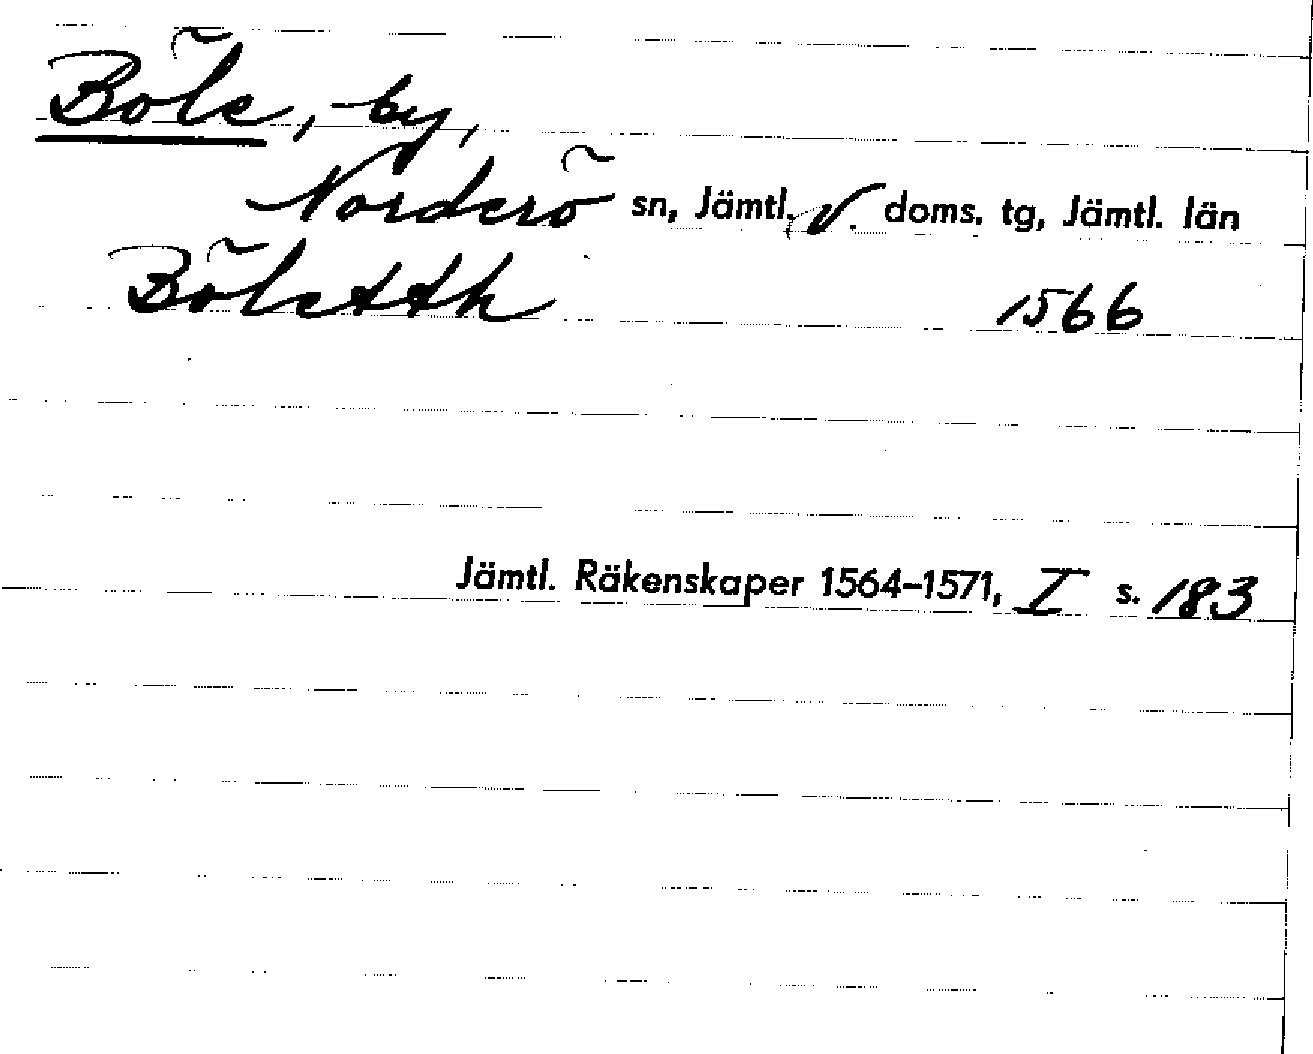 Böle, by,
Norderö sn, Jämtl. V. doms. tg, Jämtl. län
Böletth 1566
Jämtl. Räkenskaper 1564–1571, I s. 183